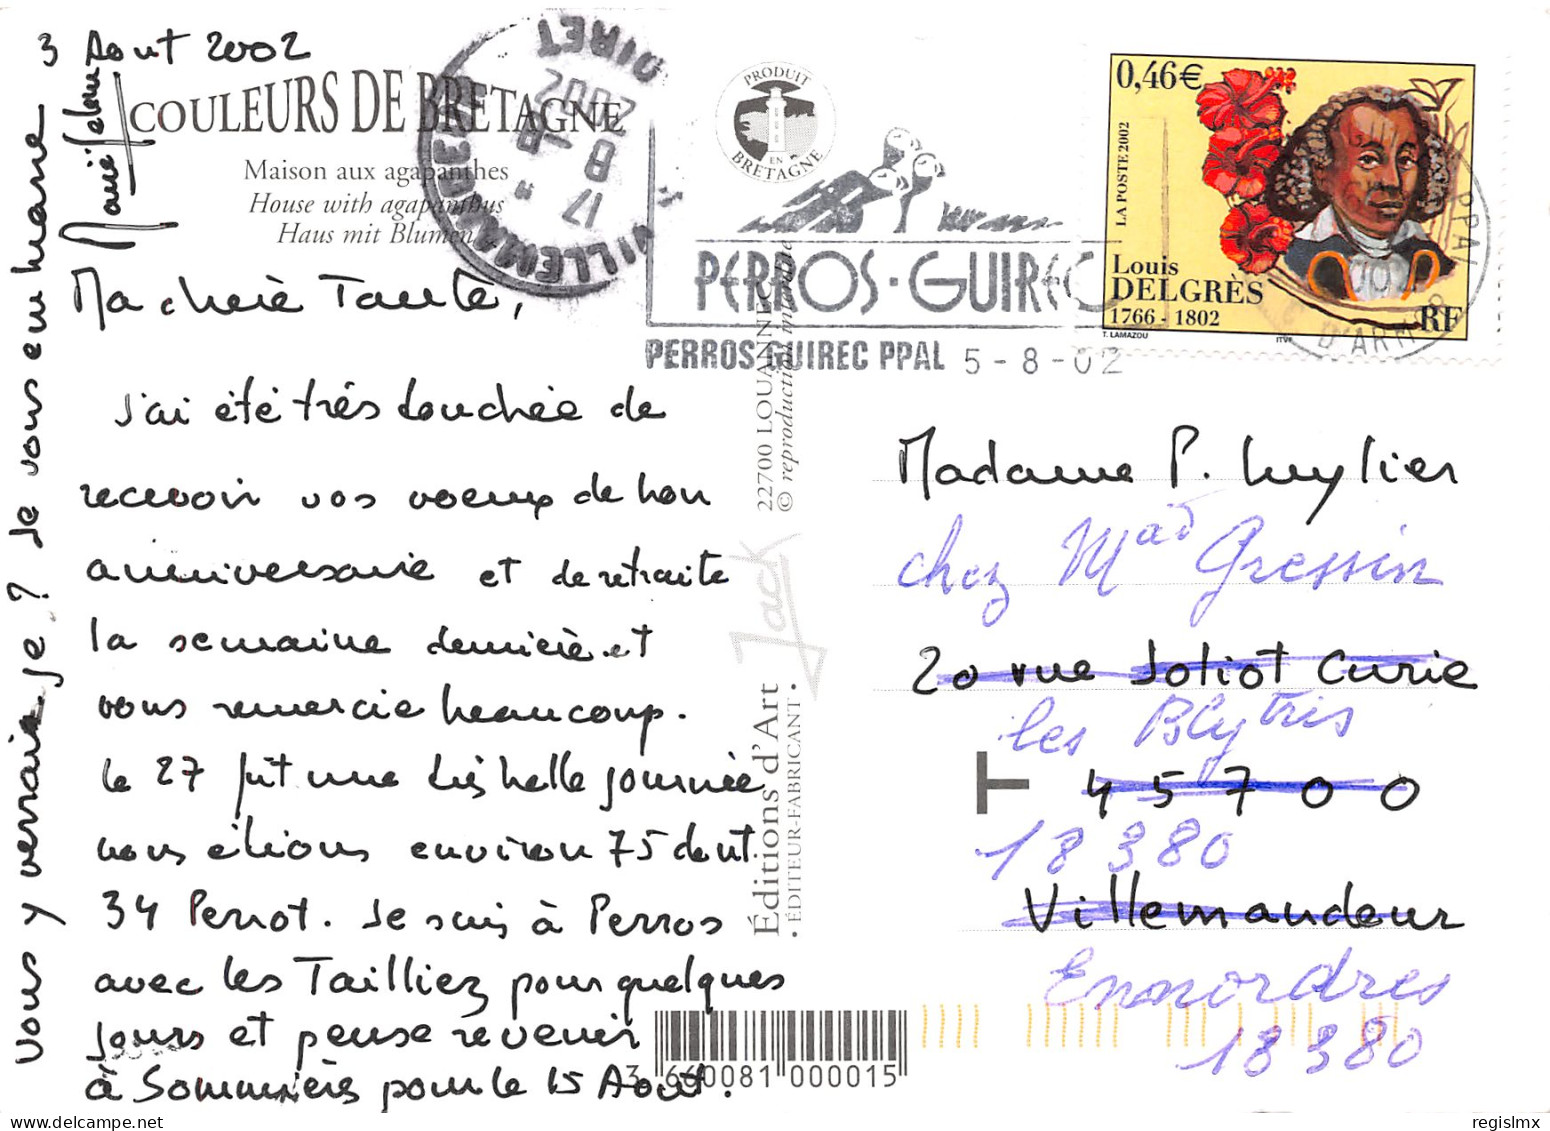 3 Aout 2002
COULEURS DE BRETAGNE
Maison aux agapanthes
House with agapanthus
Haus mit Blumen
Ma chère Tante,
J'ai été très touchée de
recevoir vos voeux de bon
anniversaire et de retraite
la semaine dernière et
vous remercie beaucoup.
Le 27 fut une très belle journée
nous étions environ 75 dont
34 Perrot. Je suis à Perros
avec les Tailliez pour quelques
jours et pense revenir
à Sommières pour le 15 Août.
Vous y verrais-je ? Je vous embrasse
VILLEMANDEUR
LOIRET
17 H
8 - 8
2002
PRODUIT
EN
BRETAGNE
PERROS-GUIREC
PERROS-GUIREC PPAL 5-8-02
0,46€
LA POSTE 2002
Louis
DELGRÈS
1766 - 1802
RF
T. LAMAZOU
ITVF
PPAL
D'ARMOR
22700 LOUANNEC
© reproduction interdite
Jack
Éditions d'Art
• ÉDITEUR-FABRICANT •
Madame P. Luylier
chez Mad Gressin
20 rue Joliot Curie
les Blytris
T
45700
18380
Villemandeur
Ennordres
18380
3 660081 000015
regislmx